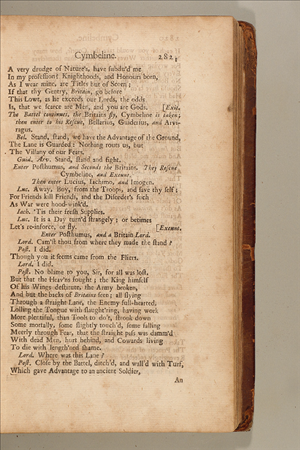 Cymbeline. 2821
A very drudge of Nature's, have subdu'd me
In my profession? Knighthoods, and Honours born,
As I wear mine, are Titles but of Scorn;
If that thy Gentry, Britain, go before
This Lowt, as he exceeds our Lords, the odds
Is, that we scarce are Men, and you are Gods. [Exit.
The Battel continues, the Britains fly, Cymbeline is taken;
then enter to his Rescue, Bellarius, Guiderius, and Arvi-
ragus.
Bel. Stand, stand, we have the Advantage of the Ground,
The Lane is Guarded: Nothing routs us, but
The Villany of our Fears.
Guid. Arv. Stand, stand and fight.
Enter Posthumus, and Seconds the Britains. They Rescue
Cymbeline, and Exeunt.
Then enter Lucius, Iachimo, and Imogen.
Luc. Away, Boy, from the Troops, and save thy self;
For Friends kill Friends, and the Disorder's such
As War were hood-wink'd.
Iach. 'Tis their fresh Supplies.
Luc. It is a Day turn'd strangely; or betimes
Let's re-inforce, or fly. [Exeunt.
Enter Posthumus, and a Britain Lord.
Lord. Cam'st thou from where they made the stand?
Post. I did.
Though you it seems came from the Fliers.
Lord. I did.
Post. No blame to you, Sir, for all was lost,
But that the Heav'ns fought; the King himself
Of his Wings destitute, the Army broken,
And but the backs of Britains seen; all flying
Through a straight Lane, the Enemy full-hearted,
Lolling the Tongue with slaught'ring, having work
More plentiful, than Tools to do't, strook down
Some mortally, some slightly touch'd, some falling
Meerly through Fear, that the straight pass was damn'd
With dead Men, hurt behind, and Cowards living
To die with length'ned shame.
Lord. Where was this Lane?
Post. Close by the Battel, ditch'd, and wall'd with Turf,
Which gave Advantage to an ancient Soldier,
An